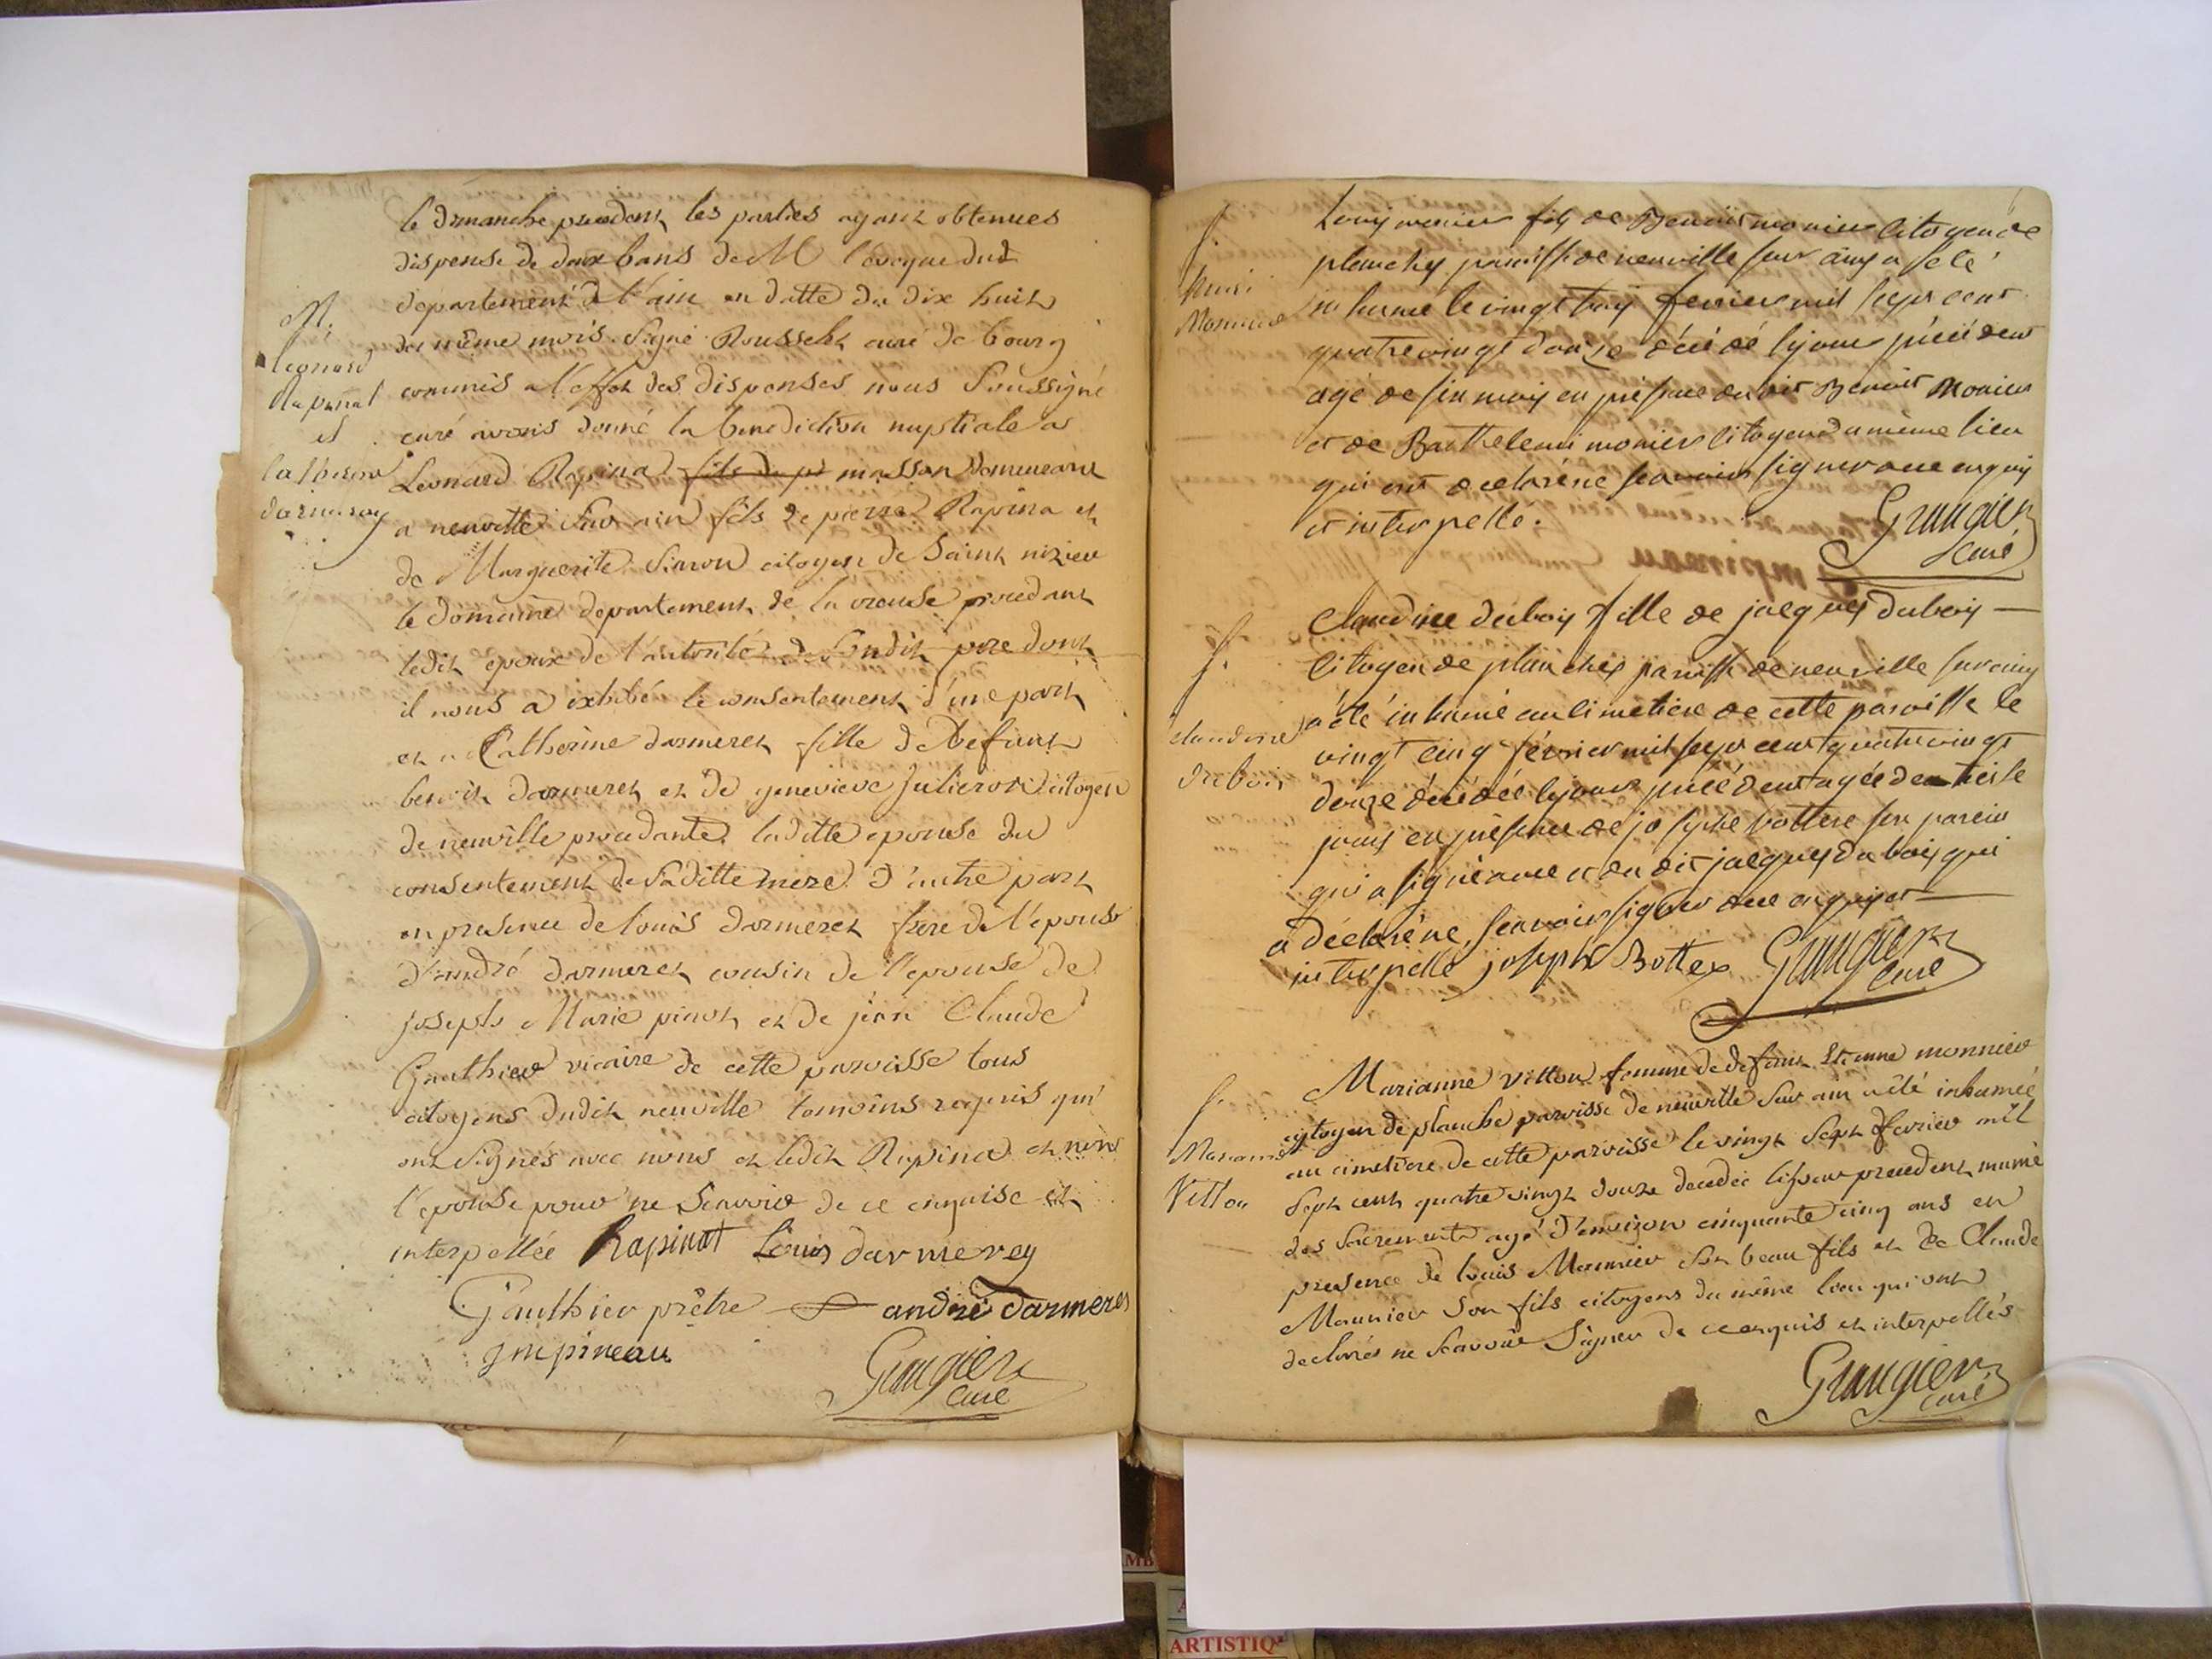 le dimanche precedent les parties ayant obtenues
dispense de deux bans de M l'eveque dud
departement de l'ain en datte du dix huit
du même mois. Signé Rousselet curé de bourg
commis a l'effet des dispenses nous Soussigné
curé avons donné la benediction nuptiale a
Leonard Rapina fils de pi masson demeurant
a neuville sur ain fils de pierre Rapina et
de Marguerite Simon citoyen de Saint nizier
le domaine departement de la creuse procedant
ledit epoux de l'autorité de Sondit pere dont
il nous a exhibé le consentement d'une part
et a Catherine darmeret fille de defunt
benoit darmeret et de genevieve Julieron citoyen
de neuville procedante laditte epouse du
consentement de Saditte mere d'autre part
en presence de louis darmeret frere de l'epouse
d'andré darmeret cousin de l'epouse de
joseph Marie pinot et de jean Claude
Gauthier vicaire de cette paroisse tous
citoyens dudit neuville temoins requis qui
ont Signés avec nous et ledit Rapina et non
l'epouse pour ne Scavoir de ce enquise et
interpellée Rapinat Louis darmerey
Gauthier prêtre andré darmeret
jmpineau
Grangier
Curé
M.
leonard
Rapinat
et
Catherine
darmeray
f.
Monnier
Louy monier fils de Benoit monier Citoyen de
planches paroisse de neuville sur ain a eté
inhumé le vingt troy fevrier mil sept cent
quatre vingt douze décédé le jour précédent
agé de six moy en présence dudit Benoit Monier
et de Barthelemi monier Citoyen du même lieu
qui ont déclaré ne scavoir signer de ce enquis
et interpellé.
Grangier
Curé
f.
claudine
duboi
Claudine duboy fille de jacques duboy
Citoyen de planches paroisse de neuville sur ain
a été inhumé au cimetiere de cette paroisse le
vingt cinq février mil sept cent quatre vingt
douze décédée le jour précédent agée de treise
jours en présence de joseph bottex son parein
qui a signé avec et du dit jacques duboy qui
a déclaré ne scavoir signer de ce enquis et
interpellé joseph Bottex Grangier
Curé
f.
Marianne
Vitton
Marianne Vitton femme de defunt Etienne monnier
citoyen de planche paroisse de neuville Sur ain a été inhumée
au cimetiere de cette paroisse le vingt Sept fevrier mil
Sept cent quatre vingt douze decedée le jour precedent munie
des Sacrements agé d'environ cinquante cinq ans en
presence de louis Monnier Son beau fils et de Claude
Monnier Son fils citoyens du même lieu qui ont
declarés ne Scavoir Signer de ce enquis et interpellés
Grangier
curé
ARTISTIQ